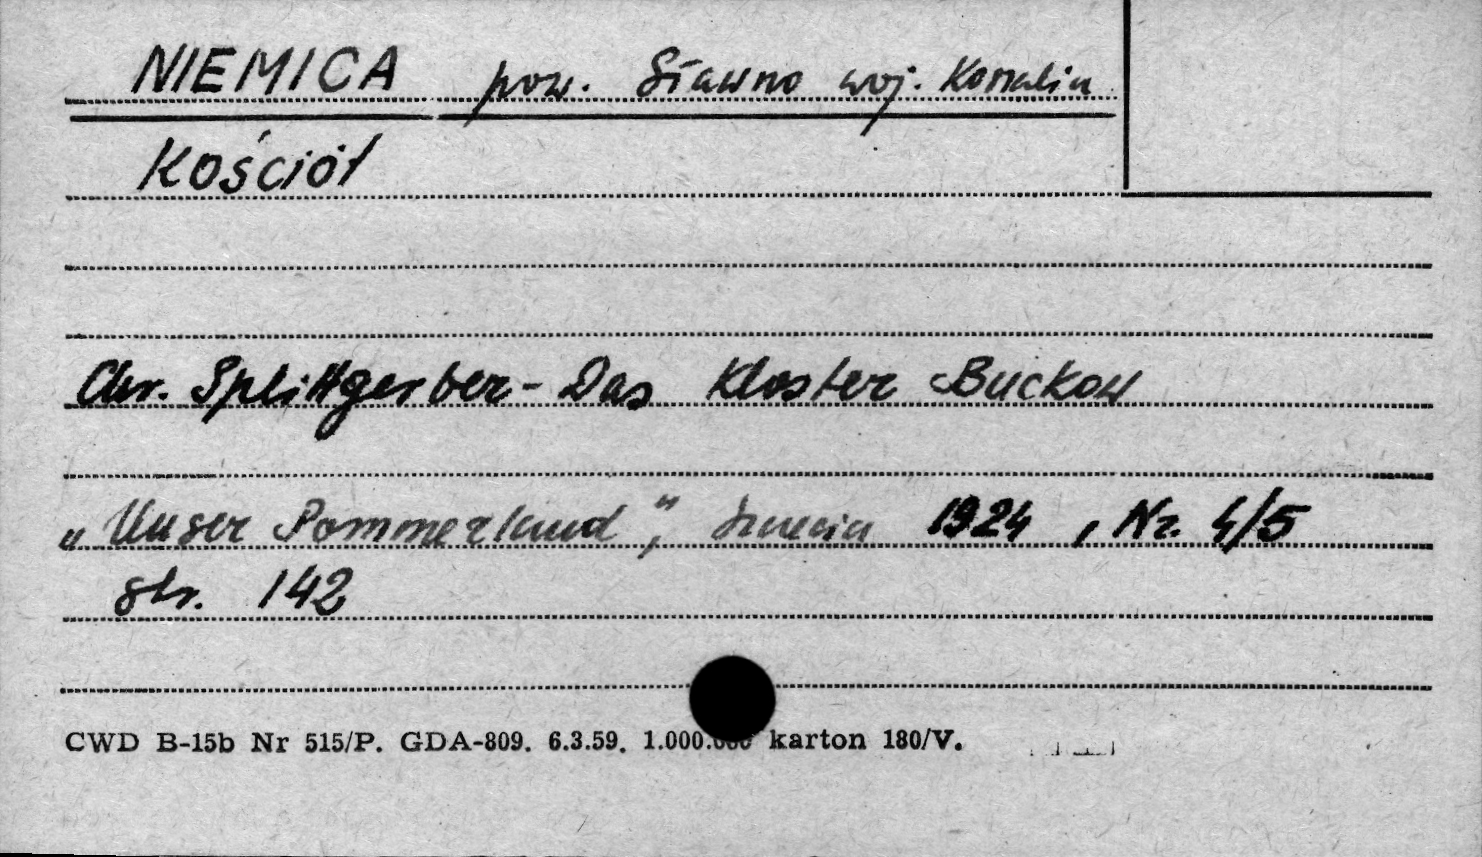 NIEMICA pow. Sławno woj. Koszalin
Kościół
Chr. Splittgerber - Das Kloster Buckow
„Unser Pommerland", Szczecin 1924, Nr. 4/5
str. 142
CWD B-15b Nr 515/P. GDA-809. 6.3.59. 1.000.000 karton 180/V.